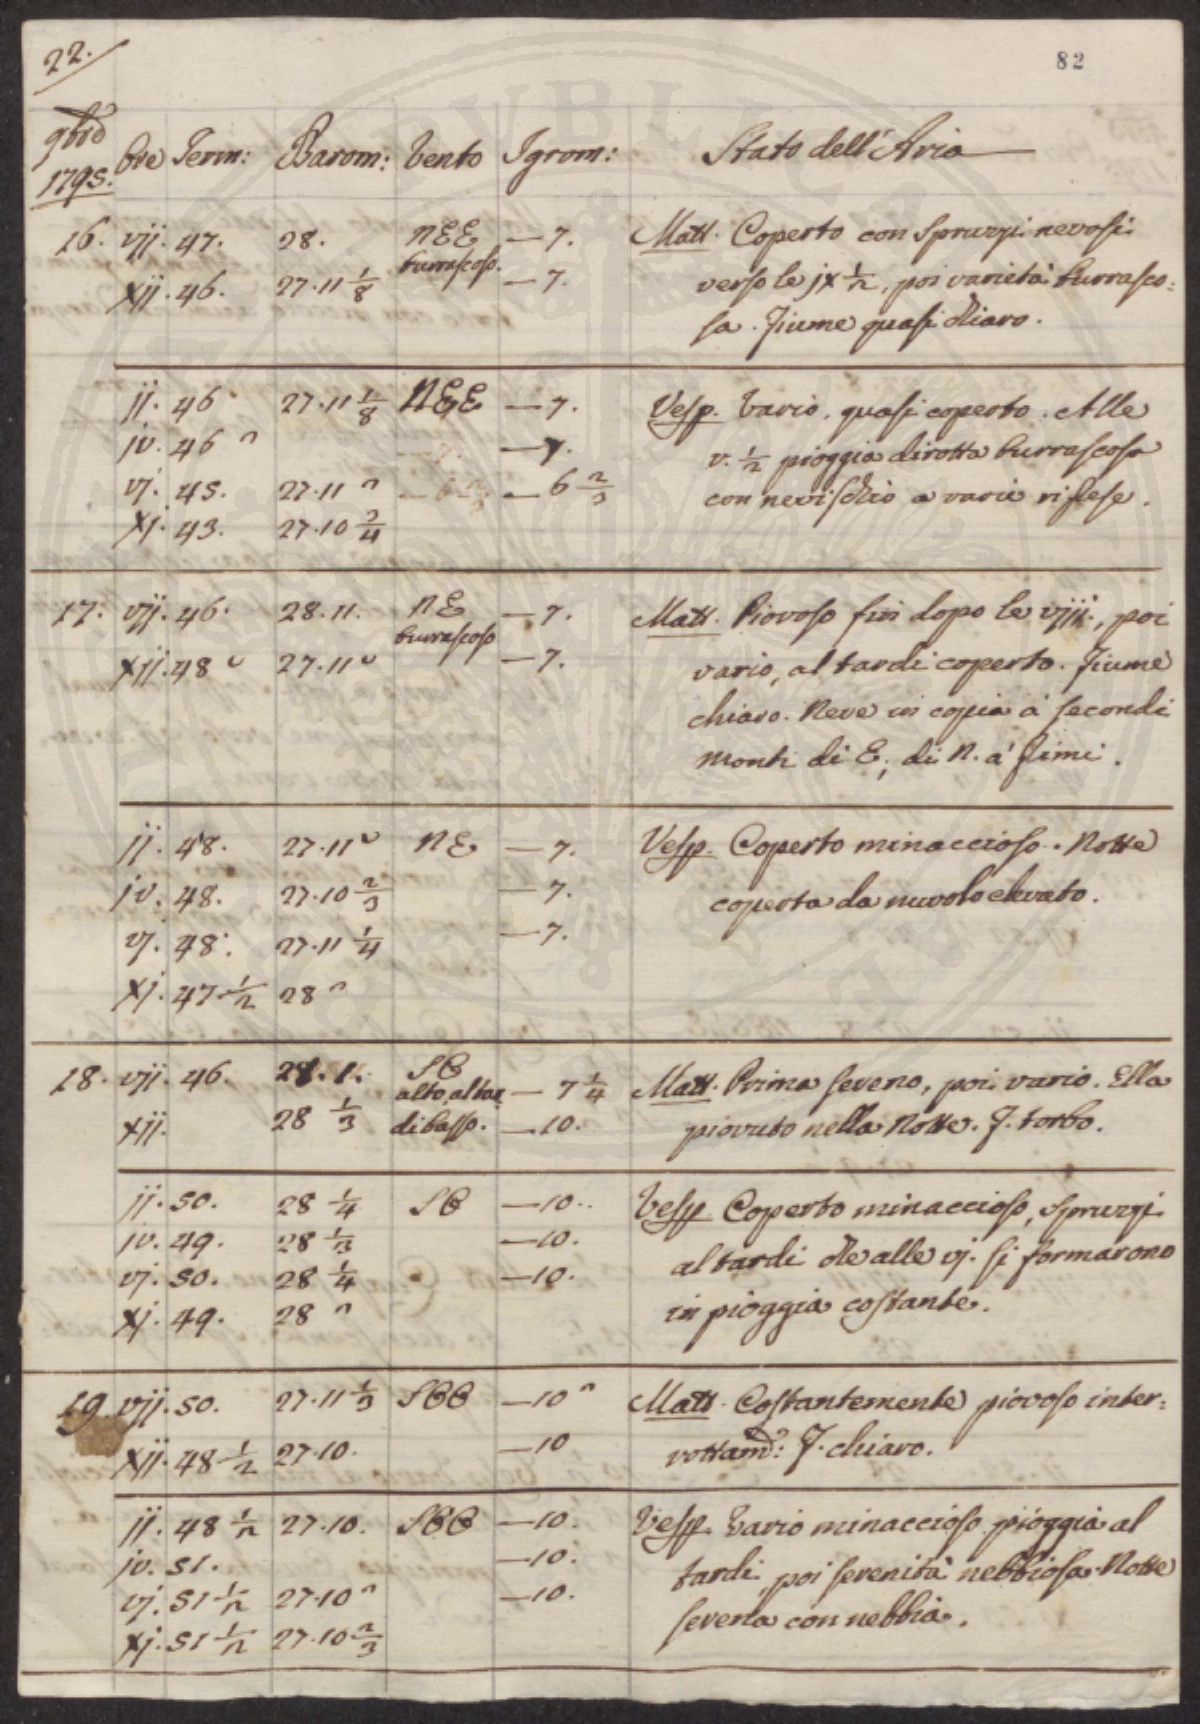 22.
82
9bre 1795. Ore Term: Barom: Vento Igrom: Stato dell'Aria
16. vij. 47. 28. NEE — 7. Matt. Coperto con Spruzzi nevosi
burrascoso.
xij. 46. 27.11 1/8 — 7. verso le jx 1/2, poi varietà burrasco:
sa. Fiume quasi chiaro.
ij. 46 27.11 1/8 NEE — 7. Vesp. Vario, quasi coperto. Alle
iv. 46 ^ — 7. v. 1/2 pioggia dirotta burrascosa
vj. 45. 27.11 ^ — 6 2/3 con nevischio a varie riprese.
xj. 43. 27.10 3/4
17. vij. 46. 28.11. NE — 7. Matt. Piovoso fin dopo le viij., poi
burrascoso
xij. 48 ᵕ 27.11 ᵕ — 7. vario, al tardi coperto. Fiume
chiaro. Neve in copia a' secondi
monti di E.; di N. a' primi.
ij. 48. 27.11 ᵕ NE — 7. Vesp. Coperto minaccioso. Notte
iv. 48. 27.10 2/3 — 7. coperta da nuvolo elevato.
vj. 48. 27.11 1/4 — 7.
xj. 47. 1/2 28 ^
18. vij. 46. 28.1. SE — 7 1/4 Matt. Prima sereno, poi vario. Ella
alto, altar
xij. 28 1/3 di basso. — 10. piovuto nella Notte. F. torbo.
ij. 50. 28 1/4 SE — 10.. Vesp. Coperto minaccioso, spruzzi
iv. 49. 28 1/3 — 10. al tardi che alle vj. si formarono
vj. 50. 28 1/4 — 10. in pioggia costante.
xj. 49. 28 ^
19 vij. 50. 27.11 1/3 SEE — 10 ^ Matt. Costantemente piovoso inter:
xij. 48 1/2 27.10. — 10 rottamᵉ: F. chiaro.
ij. 48 1/2 27.10. SEE — 10. Vesp. Vario minaccioso, pioggia al
iv. 51. — 10. tardi, poi serenità nebbiosa. Notte
vj. 51 1/2 27.10 ^ — 10. serena con nebbia.
xj. 51 1/2 27.10 2/3